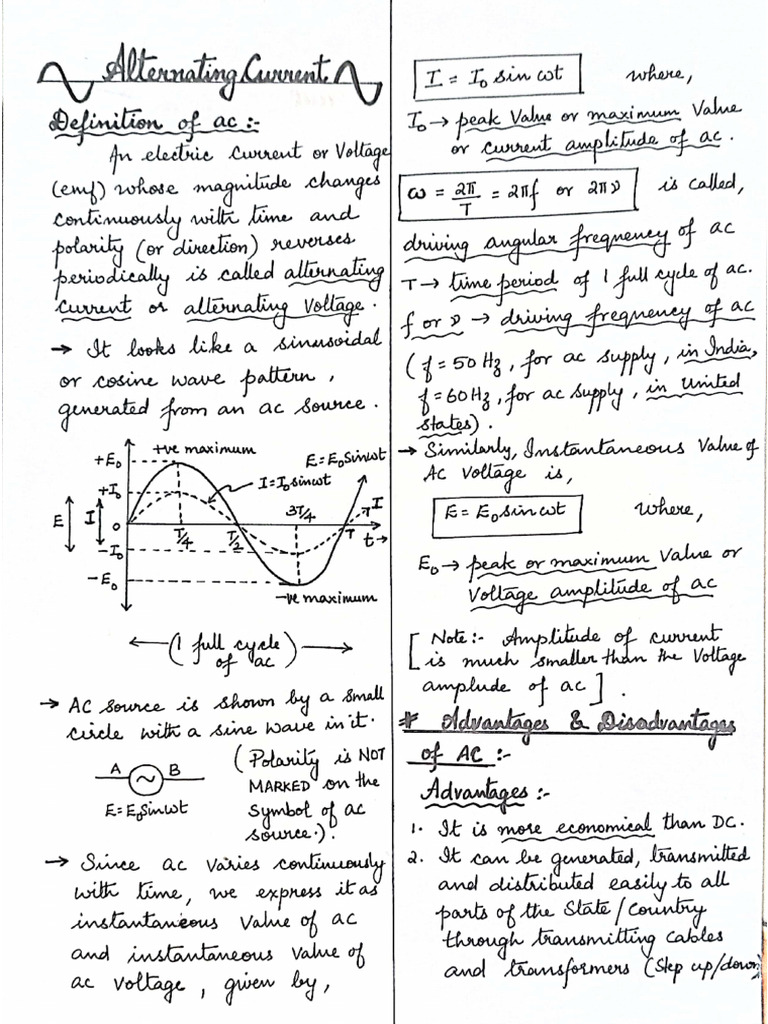 Alternating Current
Definition of ac :-
An electric current or Voltage
(emf) whose magnitude changes
continuously with time and
polarity (or direction) reverses
periodically is called alternating
current or alternating Voltage.
→ It looks like a sinusoidal
or cosine wave pattern,
generated from an ac source.
+ve maximum
E = E₀ sin ωt
I = I₀ sin ωt
+E₀
+I₀
E
I
0
-I₀
-E₀
T/4
T/2
3T/4
T
I
t→
-ve maximum
(1 full cycle
of ac)
→ AC source is shown by a small
circle with a sine wave in it.
A ~ B
E = E₀ sin ωt
(Polarity is NOT
MARKED on the
symbol of ac
source.).
→ Since ac varies continuously
with time, we express it as
instantaneous value of ac
and instantaneous value of
ac voltage, given by,
I = I₀ sin ωt where,
I₀ → peak value or maximum value
or current amplitude of ac.
ω = 2π/T = 2πf or 2πν is called,
driving angular frequency of ac
T → time period of 1 full cycle of ac.
f or ν → driving frequency of ac
(f = 50 Hz, for ac supply, in India,
f = 60 Hz, for ac supply, in United
states).
→ Similarly, Instantaneous Value of
AC voltage is,
E = E₀ sin ωt where,
E₀ → peak or maximum value or
Voltage amplitude of ac
[Note:- Amplitude of current
is much smaller than the Voltage
amplude of ac].
# Advantages & Disadvantages
of AC :-
Advantages :-
1. It is more economical than DC.
2. It can be generated, transmitted
and distributed easily to all
parts of the State/Country
through transmitting cables
and transformers (Step up/down)